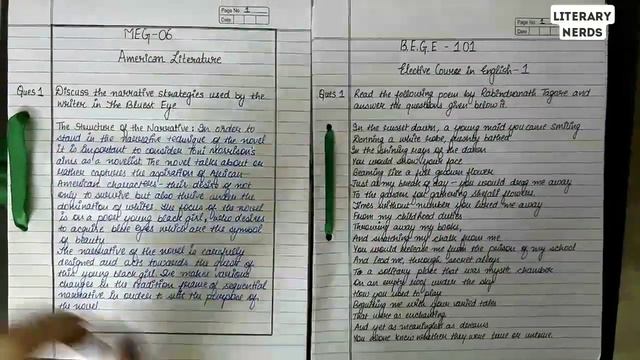 Page No. 1
Date
MEG-06
American Literature
Ques 1
Discuss the narrative strategies used by the
writer in The Bluest Eye
The Structure of the Narrative: In order to
stand in the narrative technique of the novel
it is important to consider Toni Morrison's
aims as a novelist. The novel talks about or
rather captures the aspiration of African
American characters - their desire of not
only to survive but also thrive under the
domination of whites. The focus of the novel
is on a poor young black girl, who desires
to acquire blue eyes which are the symbol
of beauty
The narrative of the novel is carefully
designed and acts towards the of
this young black girl. She makes various
changes in the tradition frame of sequential
narrative in order to suit the purpose of
the novel.
Page No. 1
Date
LITERARY
NERDS
B.E.G.E - 101
Elective Course in English-1
Ques 1
Read the following poem by Rabindranath Tagore and
answer the questions given below it.
In the russet dawn, a young maid you came smiling
Donning a white robe, freshly bathed
In the rays of the dawn
You would show your face
Beaming like a full golden flower
Just at my break of day - you would drag me away
To the gardens for gathering flowers
Times without number you lured me away
From my childhood duties
Throwing away my books,
And snatching my chalk from me
You would release me from the prison of my school
And lead me, through secret alleys
To a solitary place that was mystic chamber
On an empty roof under the sky
How you used to play
Beguiling me with your varied tales
That were as enchanting
And yet as meaningless as dreams
You alone knew whether they were true or untrue.